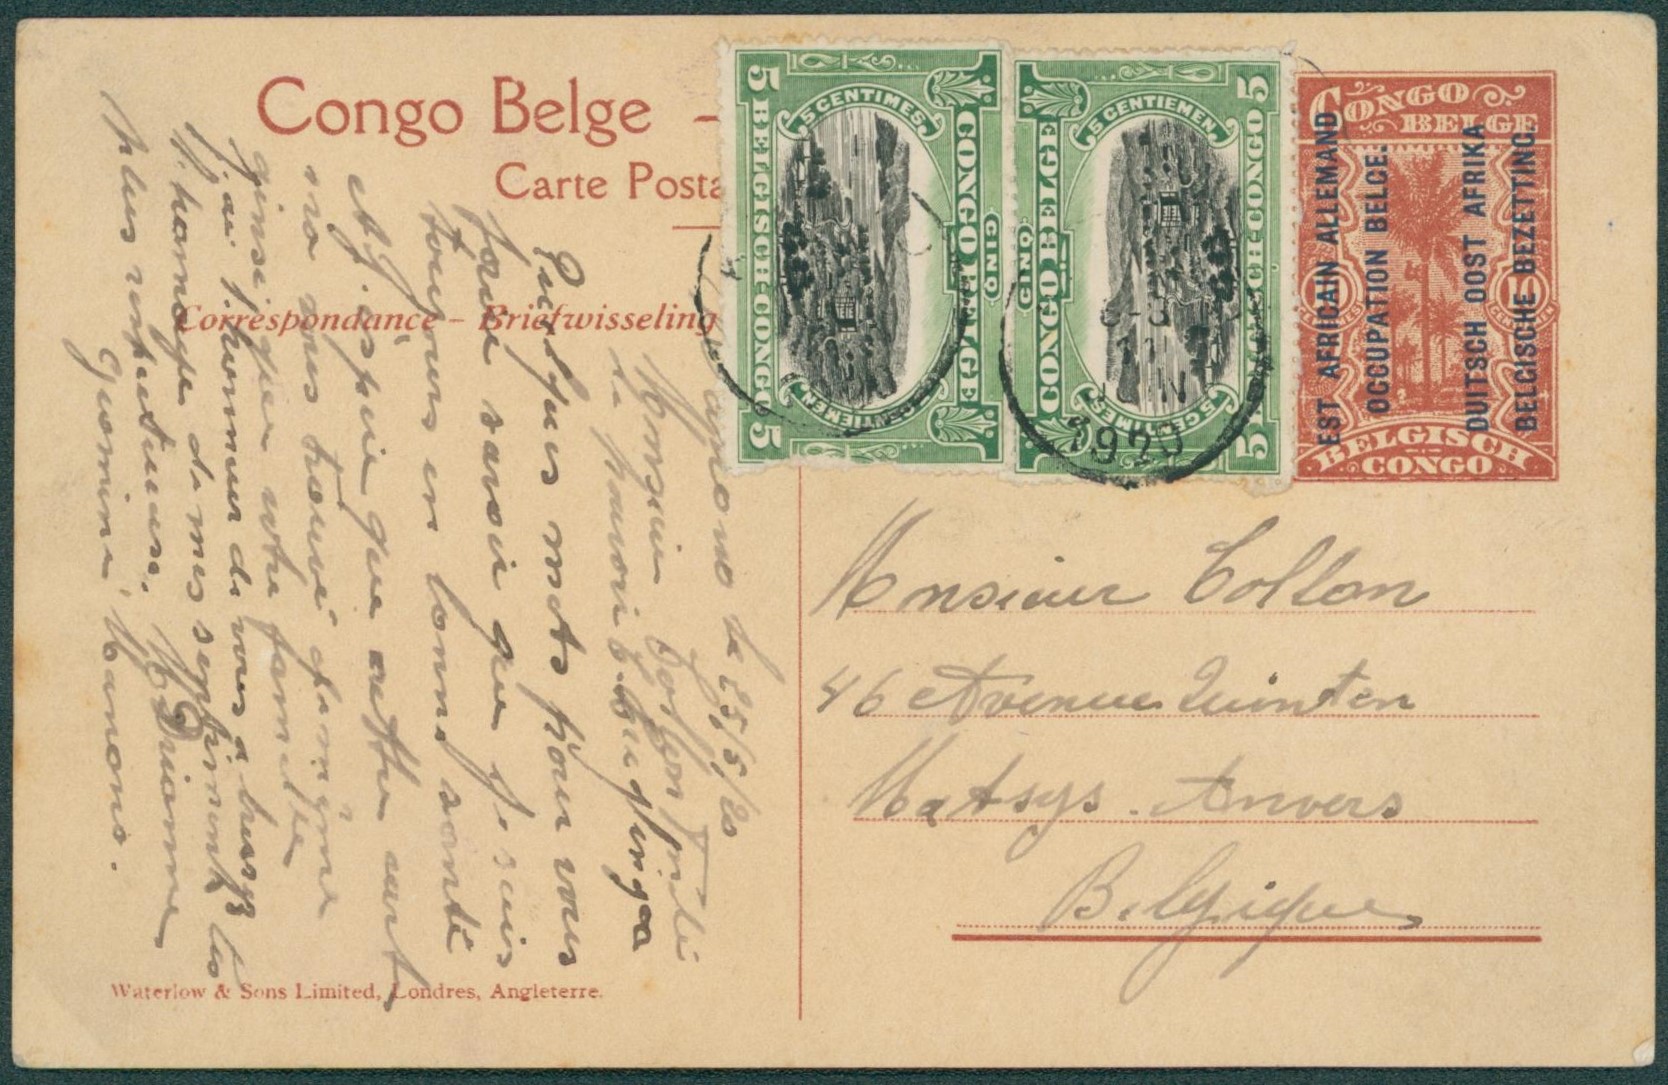 Congo Belge –
Carte Posta
Correspondance – Briefwisseling
5 CENTIMES
CONGO BELGE
CINQ
BELGISCH CONGO
5
5
CENTIEMEN
5 CENTIEMEN
CONGO BELGE
CINQ
CH-CONGO
5
5
5 CENTIMES
11
1920
CONGO
BELGE
15
15
CENTIEMEN
BELGISCH
CONGO
EST AFRICAIN ALLEMAND
OCCUPATION BELGE.
DUITSCH OOST AFRIKA
BELGISCHE BEZETTING.
le 25/5/20
Monsieur
Quelques mots pour vous
faire savoir que je suis
toujours en bonne santé
et j'espère que cette carte
na vous trouvé de même
ainsi que votre famille
j'ai l'honneur de vous
l'homage de mes sentiments les
plus respectueux.
Monsieur Collon
46 Avenue Quinten
Matsys. Anvers
Belgique
Waterlow & Sons Limited, Londres, Angleterre.